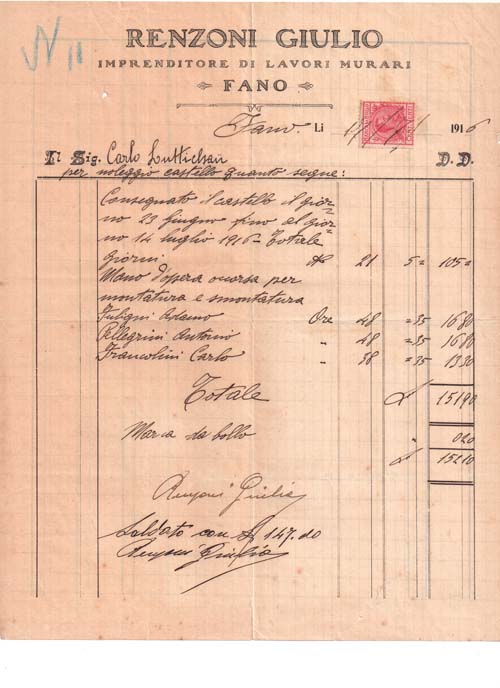 N 11
RENZONI GIULIO
IMPRENDITORE DI LAVORI MURARI
FANO
Fano. Li 1916
Il Sig. Carlo D. D.
per noleggio castello quanto segue:
Consegnato il castello il gior=
no 23 Giugno fino al gior=
no 14 luglio 1916 - Totale
giorni No 21 5= 105=
Mano d'opera occorsa per
montatura e smontatura
Fuligni Adamo Ore 48 =35 1680
Pellegrini Antonio " 48 =35 1680
Francolini Carlo " 38 =35 1330
Totale £ 15190
Marca da bollo " 020
£ 15210
Renzoni Giulio
Saldato con £ 147.
Renzoni Giulio